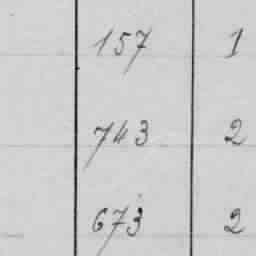 157 1
743 2
673 2